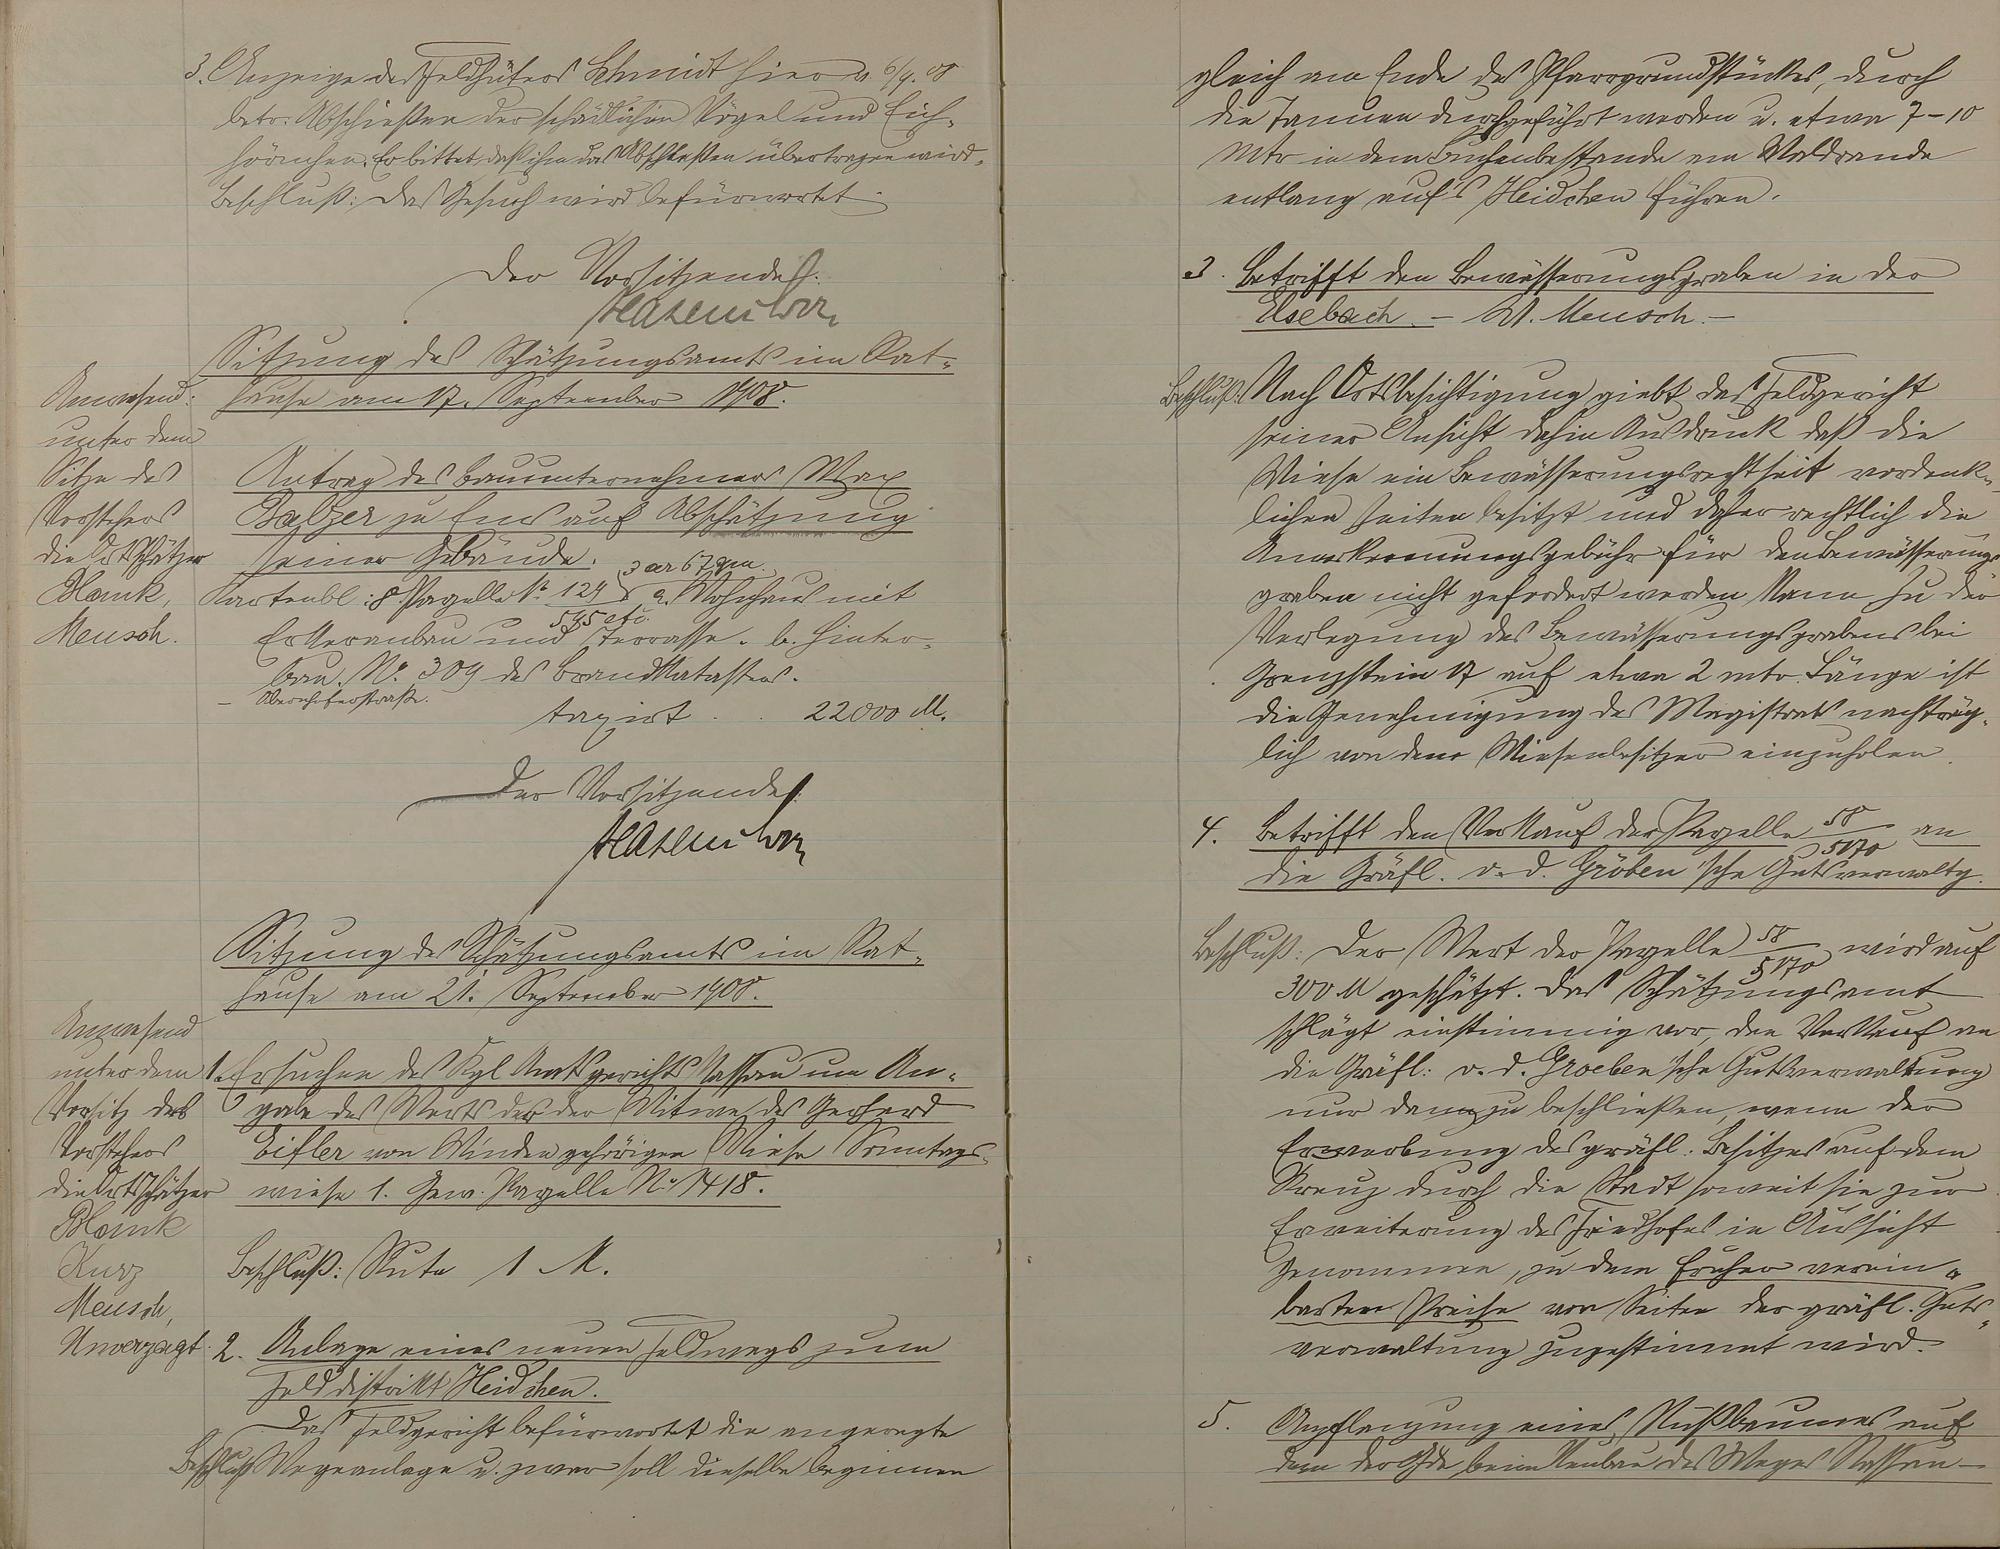 3. Anzeige des Feldhüters Schmidt hier v. 6/9. 08
betr. Abschießen der schädlichen Vögel und Eich-
hörnchen. Er bittet, daß ihm das Abschießen übertragen wird.
Beschluß: Das Gesuch wird befürwortet.
Der Vorsitzende:
Hasenclever
Sitzung des Schätzungsamts im Rat-
hause am 17. September 1908.
Anwesend:
unter dem
Sitze des
Vorstehers
die Ortsschätzer
Blank,
Meusch.
Antrag des Bauunternehmers Max
Balzer zu Ems auf Abschätzung
seiner Gebäude.
3 ar 67 qm.
Kartenbl: 8 Parzelle № 129/545 etc. a. Wohnhaus mit
Erkeranbau und Terrasse. b. Hinter-
bau. № 309 des Brandkatasters.
taxirt . . 22000 M.
Der Vorsitzende:
Hasenclever
Sitzung des Schätzungsamts im Rat-
hause am 21. September 1908.
Anwesend
unter dem
Vorsitz des
Vorstehers
die Ortsschätzer
Blank
Kurz
Meusch,
Unverzagt.
1. Ersuchen des Kgl Amtsgerichts Nassau um An-
gabe des Werts der der Witwe des Gerhard
Eifler von Winden gehörigen Wiese Sonntags-
wiese 1. Gew. Parzelle № 1418.
Beschluß: Rute 1 M.
2. Anlage eines neuen Feldwegs zum
Felddistrikt Heidchen.
Das Feldgericht befürwortet die angeregte
Beschluß Wegeanlage u. zwar soll dieselbe beginnen
gleich am Ende des Pfarrgrundstückes, durch
die Tannen durchgeführt werden u. etwa 7-10
Mtr in dem Buchenbestande am Waldrande
entlang auf's Heidchen führen.
3. Betrifft den Bewässerungsgraben in der
Elsebach. - W. Meusch. -
Beschluß: Nach Ortsbesichtigung giebt das Feldgericht
seiner Ansicht dahin Ausdruck daß die
Wiese ein Bewässerungsrecht seit vordenk-
lichen Zeiten besitzt und daher rechtlich die
Anerkennungsgebühr für den Bewässerungs-
graben nicht gefordert werden kann Zu der
Verlegung des Bewässerungsgrabens bei
Grenzstein 17 auf etwa 2 mtr. Länge ist
die Genehmigung des Magistrats nachträg-
lich von dem Wiesenbesitzer einzuholen.
4. Betrifft den Verkauf der Parzelle 58/5170 an
die Gräfl. v. d. Gröben'sche Gutsverwaltg.
Beschluß: Der Wert der Parzelle 58/5170 wird auf
300 M geschätzt. Das Schätzungsamt
schlägt einstimmig vor, den Verkauf an
die Gräfl: v. d. Groeben'sche Gutsverwaltung
nur dann zu beschließen, wenn der
Erwerbung des gräfl: Besitzes auf dem
Kreuz durch die Stadt soweit sie zur
Erweiterung des Friedhofes in Aussicht
genommen, zu dem früher verein-
barten Preise von Seiten der gräfl. Guts-
verwaltung zugestimmt wird.
5. Anpflanzung eines Nußbaumes auf
dem der beim Neubau des Weges Nassau-